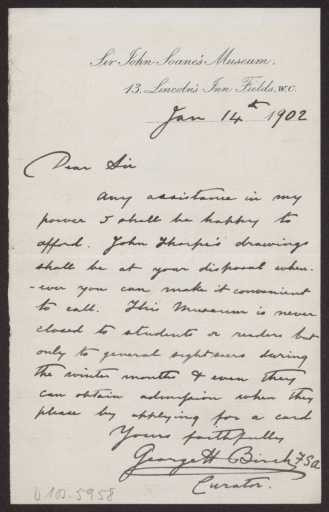 Sir John Soane's Museum.
13. Lincoln's Inn Fields. W.C.
Jan 14th 1902
Dear Sir
Any assistance in my
power I shall be happy to
afford. John Thorpe's drawings
shall be at your disposal when-
-ever you can make it convenient
to call. This Museum is never
closed to students or readers but
only to general sightseers during
the winter months & even they
can obtain admission when they
please by applying for a card
Yours faithfully
George H Birch FSA
Curator.
D 102-5958